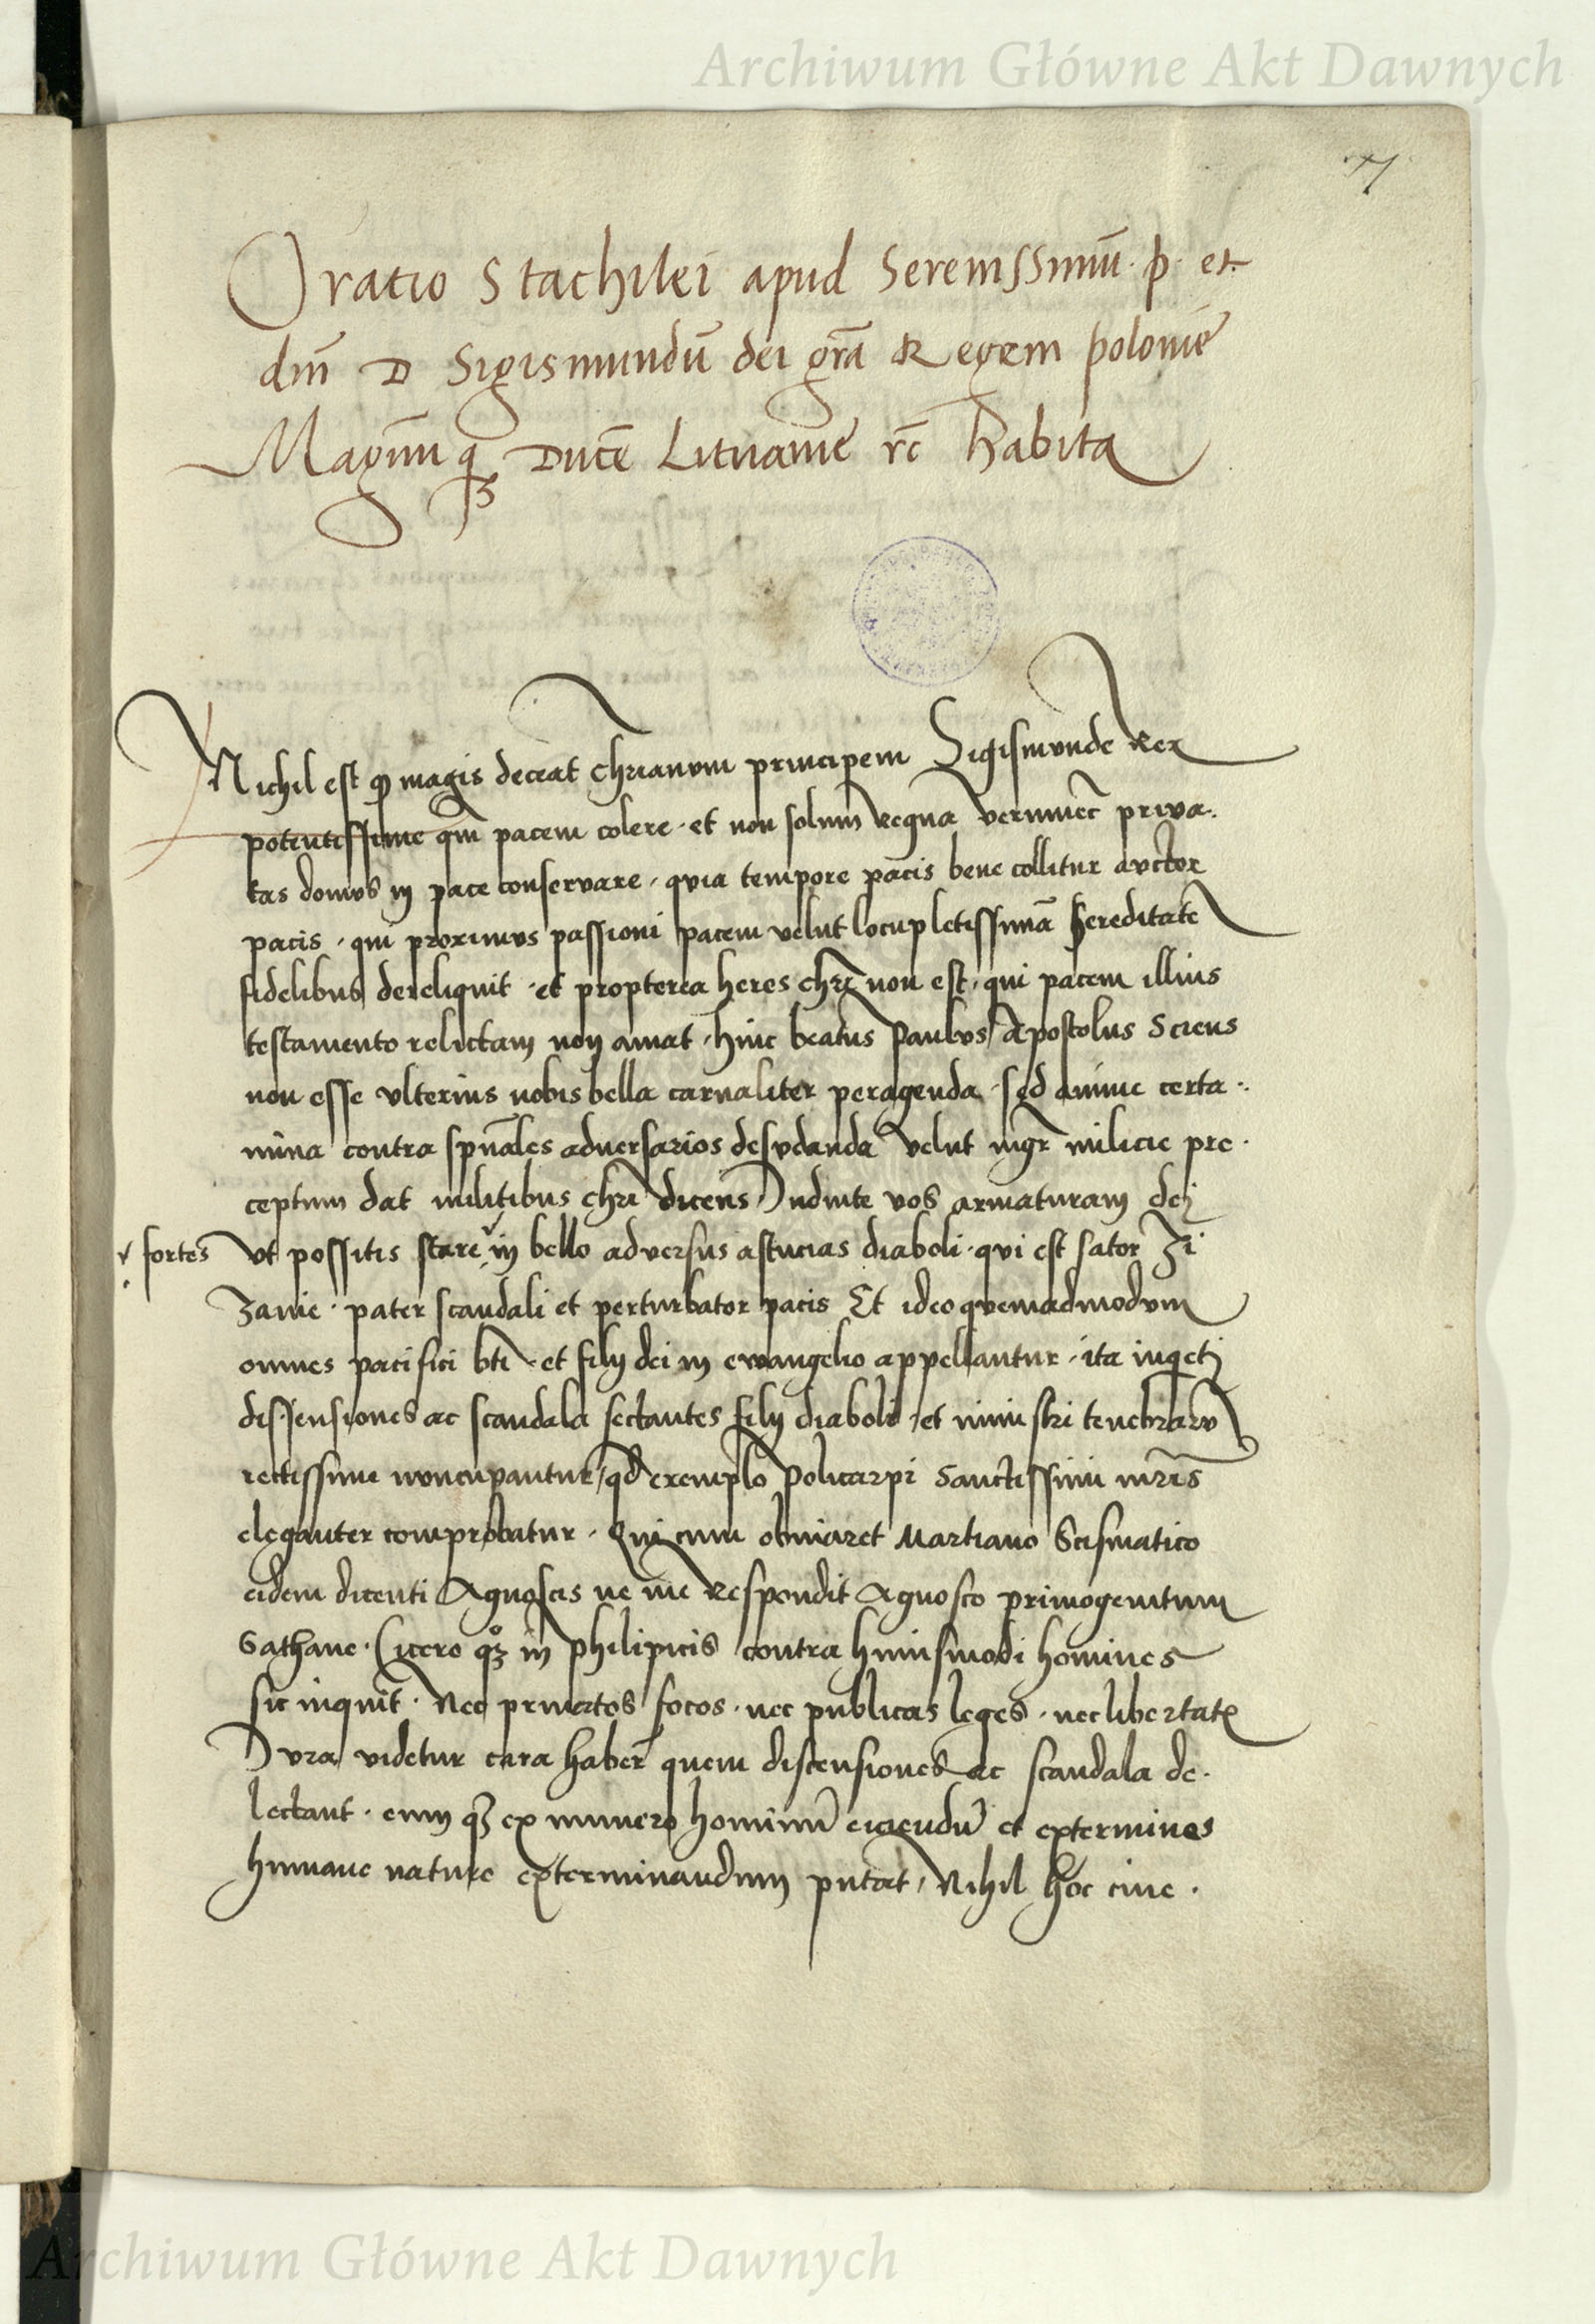 Archiwum Główne Akt Dawnych
Oratio Stachilei apud Serenissimū. p. et
dm̄ D Sigismundū dei gr̄a Regem polonie
Magnumqꝫ Ducē Lituanie rc̄ habita
Nichil est qđ magis deceat chr̄ianum principem Sigismunde Rex
potentissime qm̄ pacem colere · et non solum regna verumec̄ priva·
tas domus in pace conservare, quia tempore pacis bene collitur auctor
pacis, qui proximus passioni pacem velut locupletissimā hereditatē
fidelibus dereliquit · et propterea heres chr̄i non est, qui pacem illius
testamento relictam non amat, hinc beatus Paulus Apostolus Sciens
non esse ulterius nobis bella carnaliter peragenda, sed anime certa·
mina contra spūales adversarios desudanda velut mgr̄ milicie pre·
ceptum dat militibus chr̄i dicens Induite vos armaturam dei
fortes
ut possitis stare in bello adversus astucias diaboli · qui est sator zi
zanie · pater scandali et perturbator pacis Et ideo quemadmodum
omnes pacifici bt̄i · et filij dei in ewangelio appellantur, ita inqueti
dissensiones ac scandala sectantes filij diaboli, et ministri tenebrarū
rectissime nuncupantur, qđ exemplo Policarpi Sanctissimi mr̄is
eleganter comprobatur · Qui cum obviaret Martiano Scismatico
eidem dicenti Agnoscis ne me Respondit Agnosco primogenitum
Sathane · Cicero qꝫ in philipicis contra huiusmodi homines
sic inquit · Nec privatos focos · nec publicas leges · nec libertatē
Dura videtur cara haber̄ quem discensiones ac scandala de·
lectant · eum qꝫ ex numero hominū eiciendū et extermines
humane nature exterminandum putat, Nihil hoc cive ·
Archiwum Główne Akt Dawnych